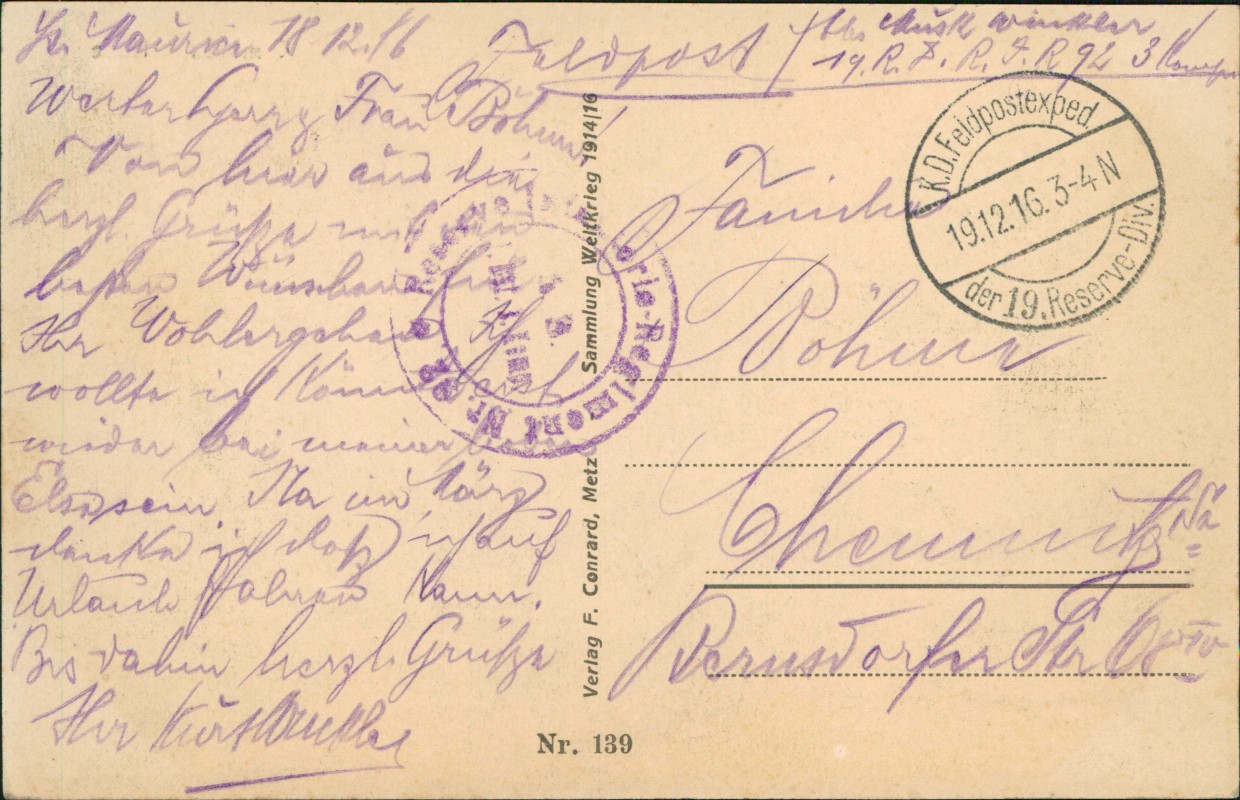 St. Maurice 18.12.16
Feldpost
Abs. Musk Winkler
19. R. D. R. I. R 92 3 Komp
Werter Herr Frau Böhme!
Von hier aus die
herzl. Grüße mit den
besten Wünschen für
Ihr Wohlergehen Ich
wollte ich könnte erst
wieder bei meiner lieben
Elsa sein Na im März
denke ich daß ich auf
Urlaub fahren kann.
Bis dahin herzl. Grüße
Ihr Kurt Winkler
Reserve-Infanterie-Regiment Nr. 92
Verlag F. Conrard, Metz Sammlung Weltkrieg 1914/16
K.D. Feldpostexped
19.12.16. 3-4 N
der 19. Reserve-Div.
Familie
Böhme
Chemnitz i/Sa
Bernsdorfer Str 68 IV
Nr. 139